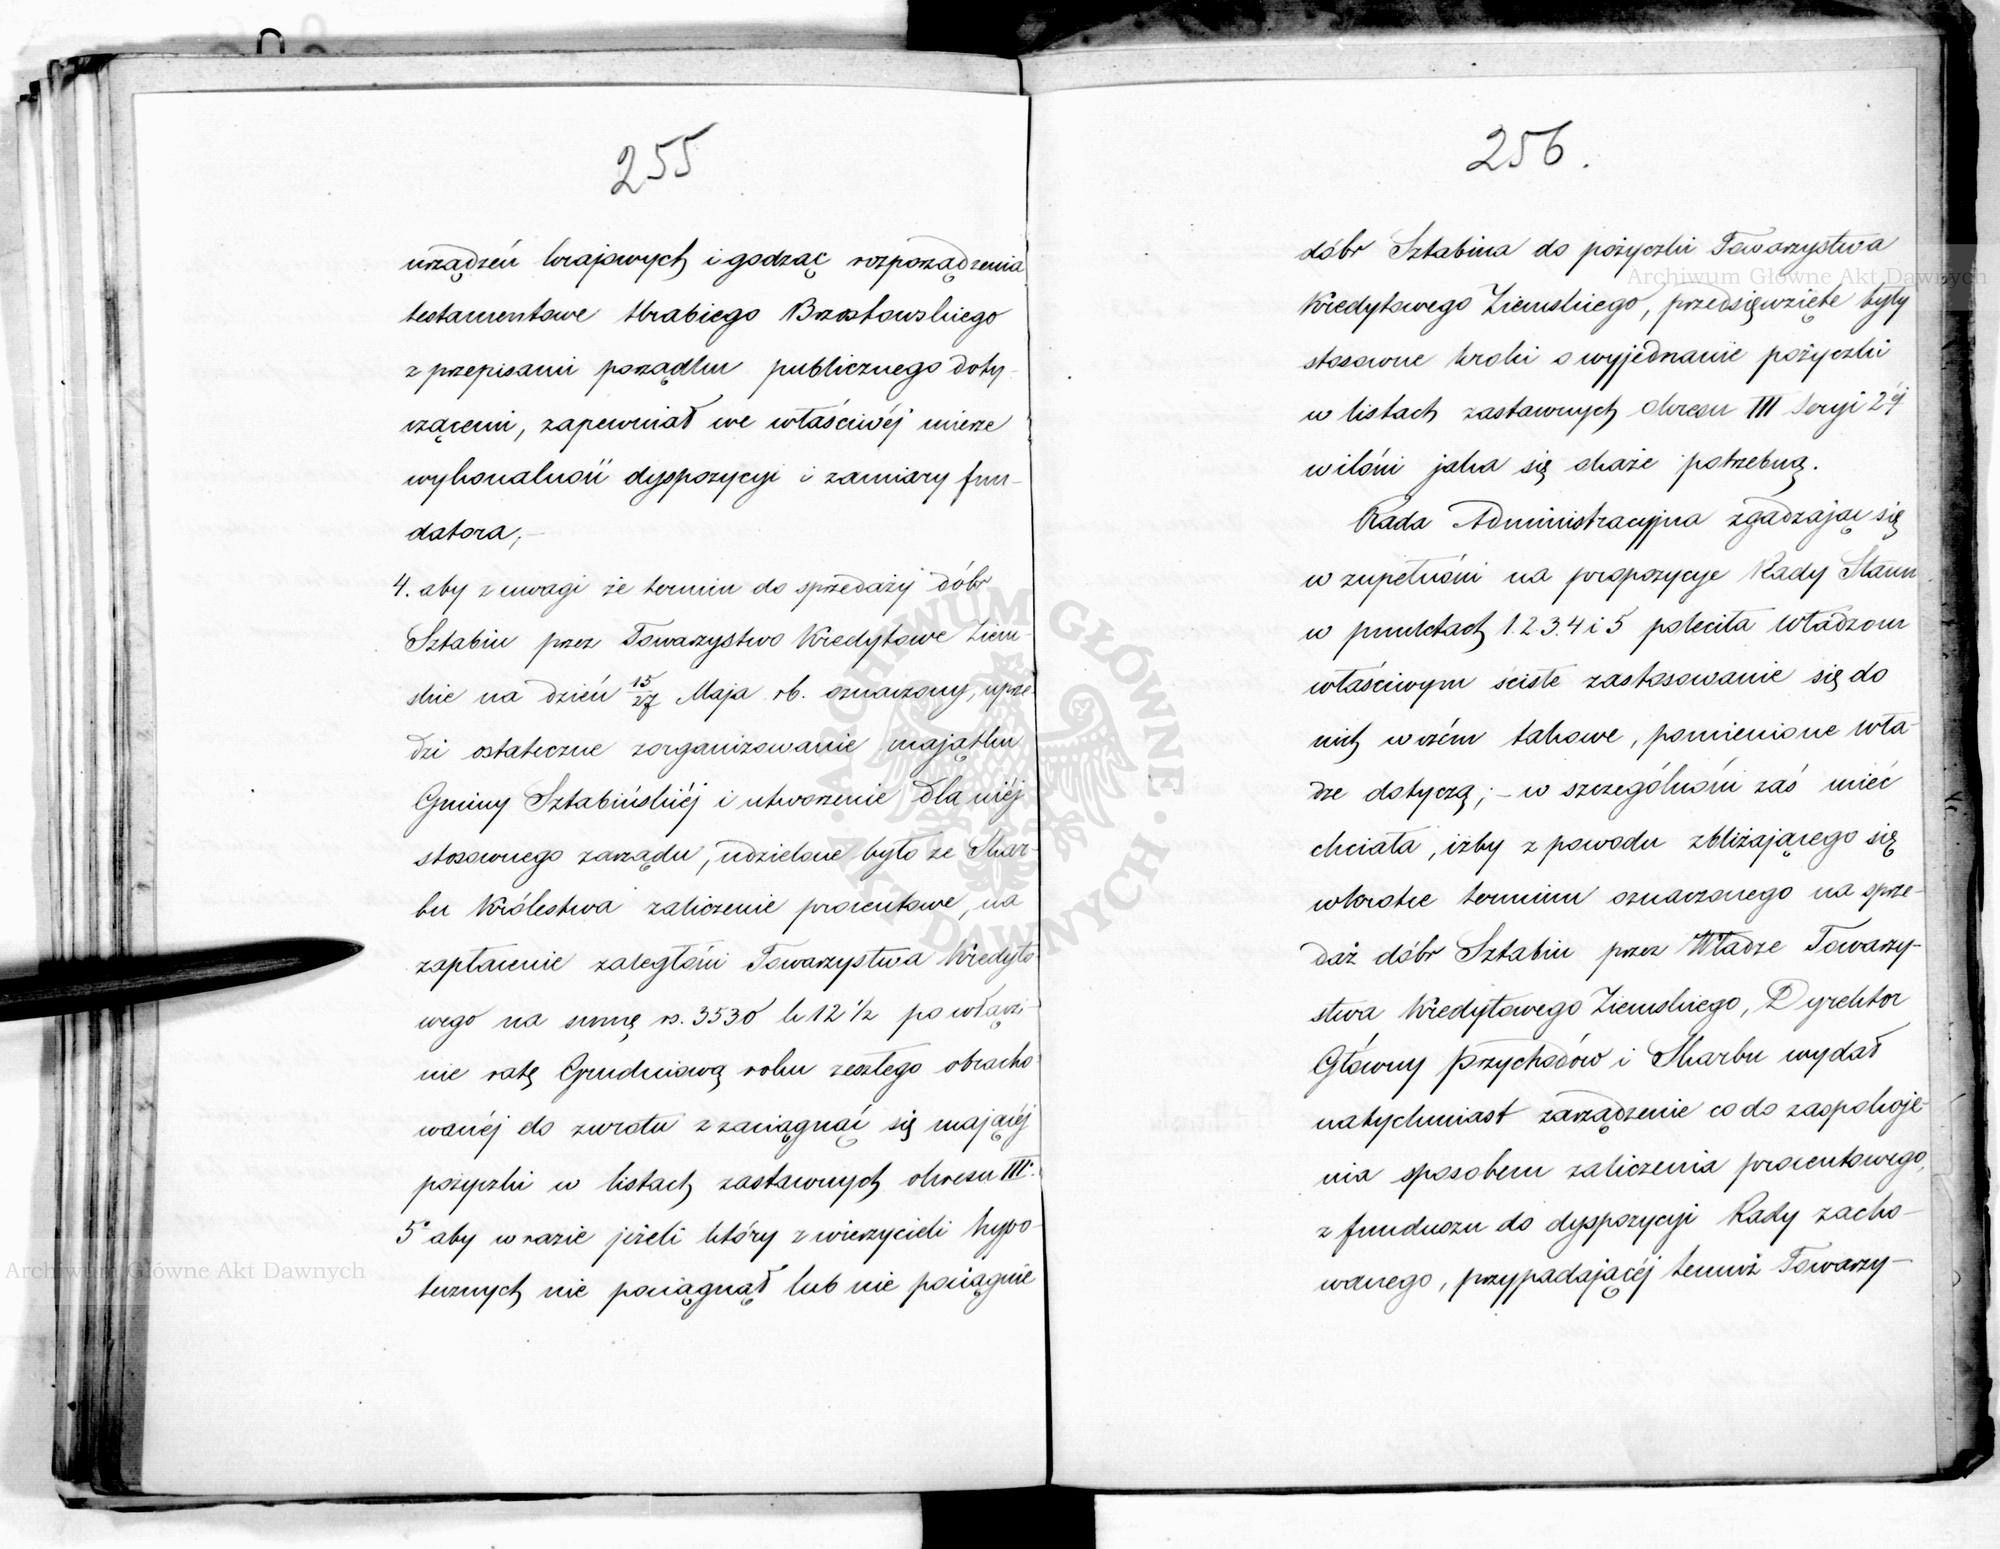 255
urządzeń krajowych i godząc rozporządzenia
testamentowe Hrabiego Brzostowskiego
z przepisami porządku publicznego doty-
czącemi, zapewniał we właściwéj mierze
wykonalność dyspozycyi i zamiary fun-
datora;-
4. aby z uwagi że termin do sprzedaży dóbr
Sztabin przez Towarzystwo Kredytowe Ziem-
skie na dzień 15/27 Maja rb. oznaczony, uprze-
dzi ostateczne zorganizowanie majątku
Gminy Sztabińskiéj i utworzenie dla niéj
stosownego zarządu, udzielone było ze Skar-
bu Królestwa zaliczenie procentowe, na
zapłacenie zaległości Towarzystwa Kredyto-
wego na summę rs. 3530 k 12 1/2 po włączi-
nie ratę Grudniową roku zeszłego obracho-
wanéj do zwrotu z zaciągnąć się mającéj
pożyczki w listach zastawnych okresu III.
5° aby w razie jeżeli który z wierzycieli hypo-
tecznych nie pociągnął lub nie pociągnie
256.
dóbr Sztabina do pożyczki Towarzystwa
Kredytowego Ziemskiego, przedsięwzięte były
stosowne kroki o wyjednanie pożyczki
w listach zastawnych okresu III Seryi 2éj
w ilości jaka się okaże potrzebną.
Rada Administracyjna zgadzając się
w zupełności na propozycye Rady Stanu
w punktach 1.2.3.4 i 5 poleciła Władzom
właściwym ścisłe zastosowanie się do
nich w czém takowe, pomienione Wła-
dze dotyczą;- w szczególności zaś mieć
chciała, iżby z powodu zbliżającego się
wkrótce terminu oznaczonego na sprze-
daż dóbr Sztabin przez Władze Towarzy-
stwa Kredytowego Ziemskiego, Dyrektor
Główny Przychodów i Skarbu wydał
natychmiast zarządzenie co do zaspokoje-
nia sposobem zaliczenia procentowego,
z funduszu do dyspozycyi Rady zacho-
wanego, przypadającéj temuż Towarzy-
Archiwum Główne Akt Dawnych
Archiwum Główne Akt Dawnych
ARCHIWUM GŁÓWNE · AKT DAWNYCH ·